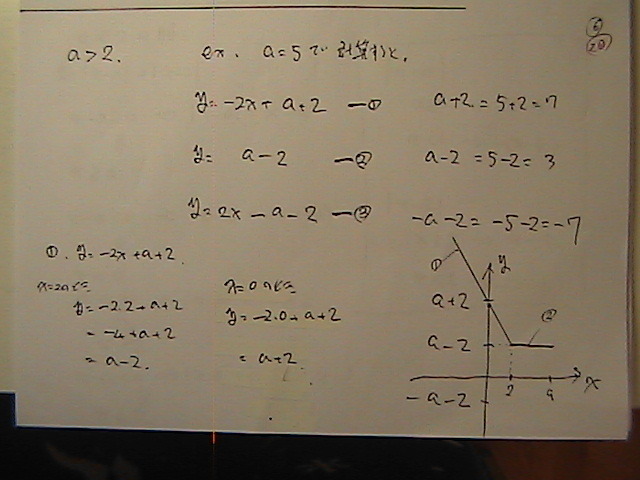 6
20
a>2. ex. a=5で計算すると.
y=-2x+a+2 —① a+2=5+2=7
y= a-2 —② a-2=5-2=3
y=2x-a-2 —③ -a-2=-5-2=-7
①. y=-2x+a+2.
x=2のとき
y=-2.2+a+2
=-4+a+2
=a-2.
x=0のとき
y=-2.0+a+2
=a+2.
① y
a+2
a-2 ②
2 a x
-a-2